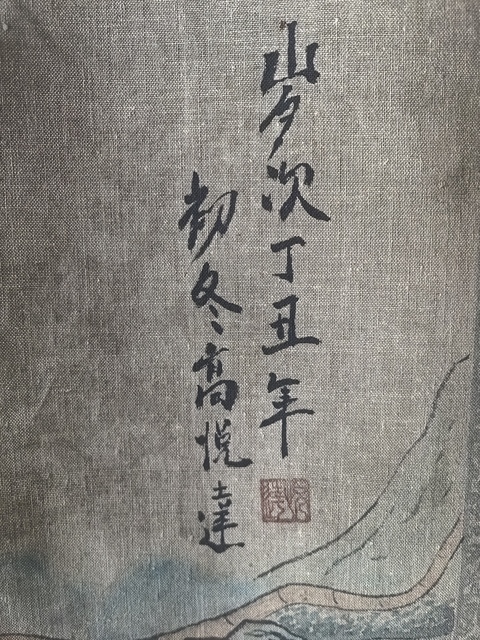 岁次丁丑年
初冬高悦達